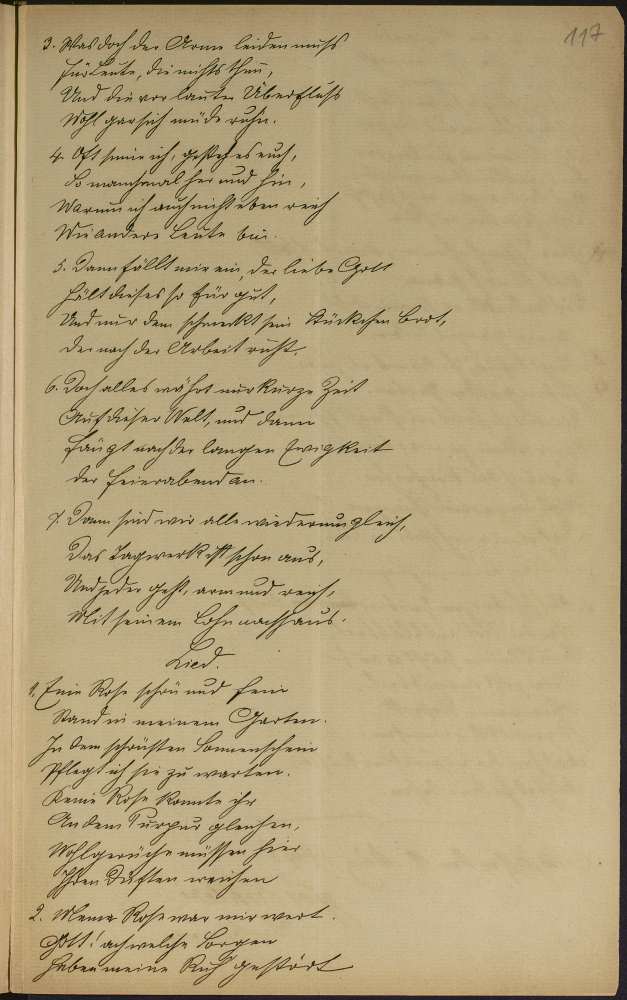 117
3. Was doch der Arme leiden muß
für Leute, die nichts thun,
Und die vor lauter Überfluß
Wohl gar sich müde ruhn.
4. Oft sinne ich, gesteh es euch,
So manchmal her und hin,
Warum ich auch nicht eben reich
Wie andere Leute bin.
5. Dann fällt mir ein, der liebe Gott
Hält dieses so für gut,
Und nur dem schmeckt sein Stückchen Brot,
Der nach der Arbeit ruht.
6. Doch alles währt nur kurze Zeit
Auf dieser Welt, und dann
Fängt nach der langen Ewigkeit
Der Feierabend an.
7. Dann sind wir alle wiederum gleich,
Das Tagwerk ist schon aus,
Und jeder geht, arm und reich,
Mit seinem Lohn nachhaus.
Lied.
1. Eine Rose schön und fein
Stand in meinem Garten.
In dem schönsten Sonnenschein
Pflegt ich sie zu warten.
Keine Rose konnte ihr
An dem Purpur gleichen,
Wohlgerüche müssen hier
Ihren Düften weichen
2. Meine Rose war mir wert.
Gott! ach welche Sorgen
Haben meine Ruh gestört